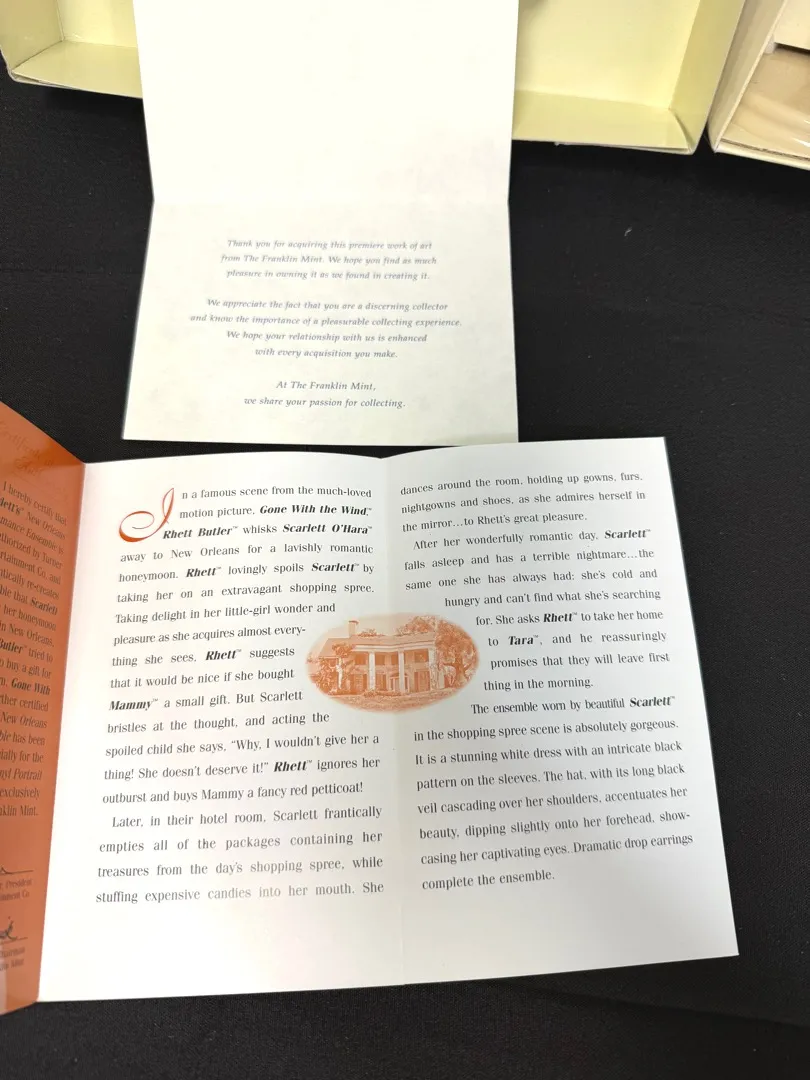 Thank you for acquiring this premiere work of art
from The Franklin Mint. We hope you find as much
pleasure in owning it as we found in creating it.
We appreciate the fact that you are a discerning collector
and know the importance of a pleasurable collecting experience.
We hope your relationship with us is enhanced
with every acquisition you make.
At The Franklin Mint,
we share your passion for collecting.
I hereby certify that
lett's™ New Orleans
mance Ensemble is
uthorized by Turner
rtainment Co. and
tically re-creates
ble that Scarlett
her honeymoon
n New Orleans.
Butler™ tried to
o buy a gift for
Gone With
ther certified
New Orleans
ble has been
ially for the
nyl Portrait
exclusively
nklin Mint.
President
inment Co.
Chairman
In a famous scene from the much-loved
motion picture, Gone With the Wind,™
Rhett Butler™ whisks Scarlett O'Hara™
away to New Orleans for a lavishly romantic
honeymoon. Rhett™ lovingly spoils Scarlett™ by
taking her on an extravagant shopping spree.
Taking delight in her little-girl wonder and
pleasure as she acquires almost every-
thing she sees, Rhett™ suggests
that it would be nice if she bought
Mammy™ a small gift. But Scarlett
bristles at the thought, and acting the
spoiled child she says, "Why, I wouldn't give her a
thing! She doesn't deserve it!" Rhett™ ignores her
outburst and buys Mammy a fancy red petticoat!
Later, in their hotel room, Scarlett frantically
empties all of the packages containing her
treasures from the day's shopping spree, while
stuffing expensive candies into her mouth. She
dances around the room, holding up gowns, furs,
nightgowns and shoes, as she admires herself in
the mirror...to Rhett's great pleasure.
After her wonderfully romantic day, Scarlett™
falls asleep and has a terrible nightmare...the
same one she has always had: she's cold and
hungry and can't find what she's searching
for. She asks Rhett™ to take her home
to Tara™, and he reassuringly
promises that they will leave first
thing in the morning.
The ensemble worn by beautiful Scarlett™
in the shopping spree scene is absolutely gorgeous.
It is a stunning white dress with an intricate black
pattern on the sleeves. The hat, with its long black
veil cascading over her shoulders, accentuates her
beauty, dipping slightly onto her forehead, show-
casing her captivating eyes. Dramatic drop earrings
complete the ensemble.